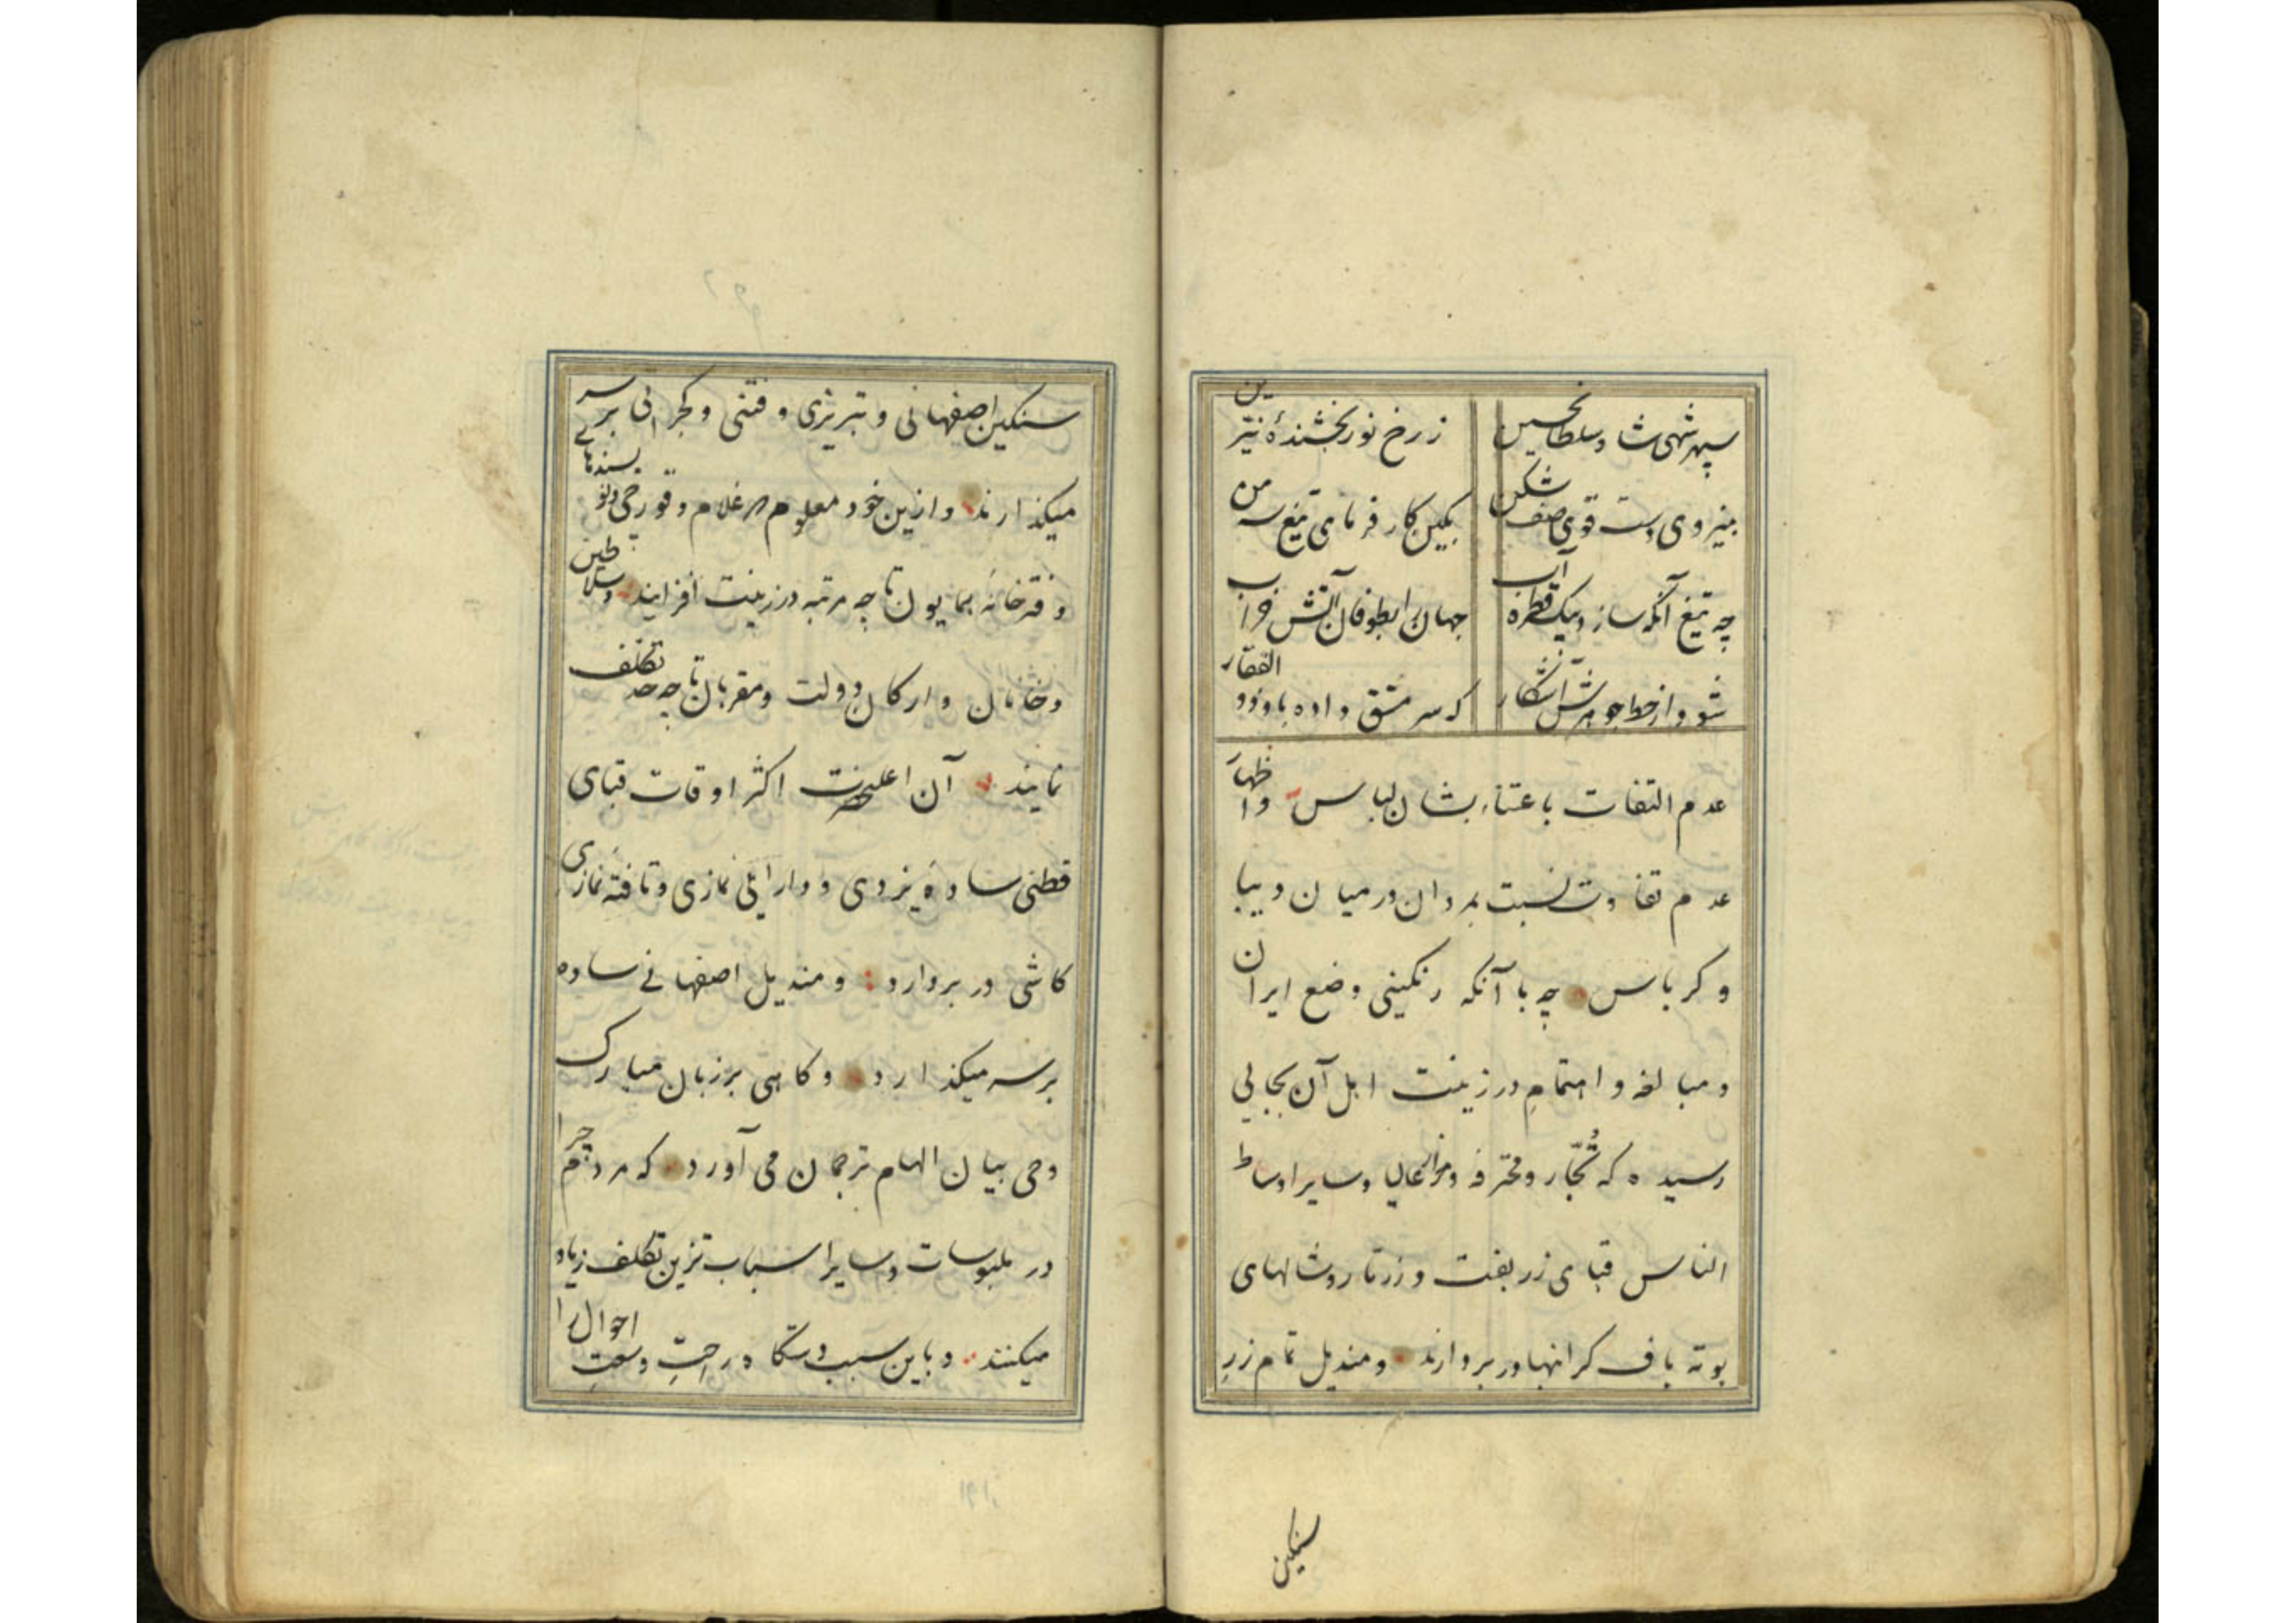 سپهر شهی شاه سلطان حسین
ز رخ نور بخشندهٔ نیّرین
بنیروی دست قوی صف شکن
بکین کار فرمای تیغ سه من
چه تیغ آنکه سازد بیک قطره آب
جهان را بطوفان آتش خراب
شود از خط جوهرش آشکار
که سر مشق داده باو ذوالفقار
عدم التفات باعتناء بشان لباس واظهار
عدم تفاوت نسبت بمردان در میان دیبا
و کرباس چه با آنکه رنکینی وضع ایران
و مبالغه و اهتمام در زینت اهل آن بجایی
رسیده که تُجّار و محترفه و سایر اوساط
الناس قبای زربفت و زرتار و شالهای
بوته باف کرانبها در بر دارند و مندیل تمام زر
سنکین
سنکین اصفهانی و تبریزی و فتنی و کجراتی بر سر
میکذارند و ازین خود معلوم غلام و قورچی
دفترخانهٔ همایون تا چه مرتبه در زینت افزایند و سلاطین
و خانان و ارکان دولت و مقربان تا چه حد تکلف
نمایند آن اعلیحضرت اکثر اوقات قبای
قطنی سادهٔ یزدی و دارایی نمازی و تافتهٔ نمازی
کاشی در بر دارد و مندیل اصفهانی ساده
بر سر میکذارد و کاهی بر زبان مبارک
وحی بیان الهام ترجمان می آورد که مردم چرا
در ملبوسات و سایر اسباب تزین تکلف زیاد
میکنند و باین سبب دستکاه راحتِ وسعتِ احوال را